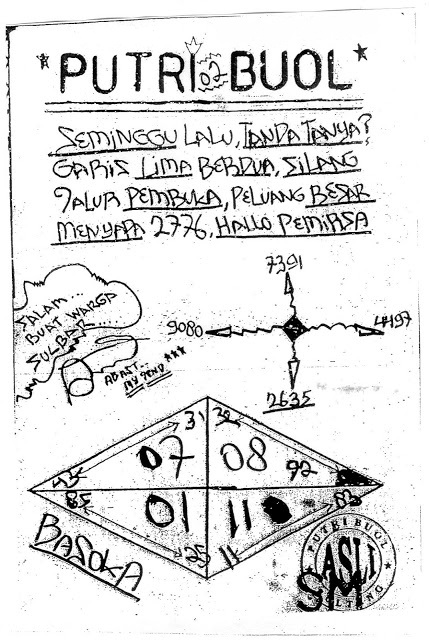 * PUTRI 02 BUOL *
SEMINGGU LALU, TANDA TANYA?
GARIS LIMA BERDUA, SILANG
JALUR PEMBUKA, PELUANG BESAR
MENYAPA 2776, HALLO PEMIRSA
7391
SALAM...
BUAT WARGA
SULBAR...
9080
4197
ABAST..
***
2635
31 32
07 08
92
01 11
85
25 11
BASOKA
PUTRI BUOL
ASLI
SM